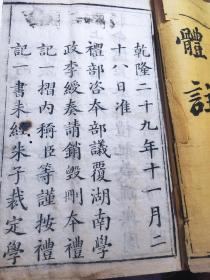 乾隆二十九年十一月二
十八日准
禮部咨本部議覆湖南學
政李綬奏請銷毀刪本禮
記一摺内稱臣等謹按禮
記一書朱經朱子裁定學
體註